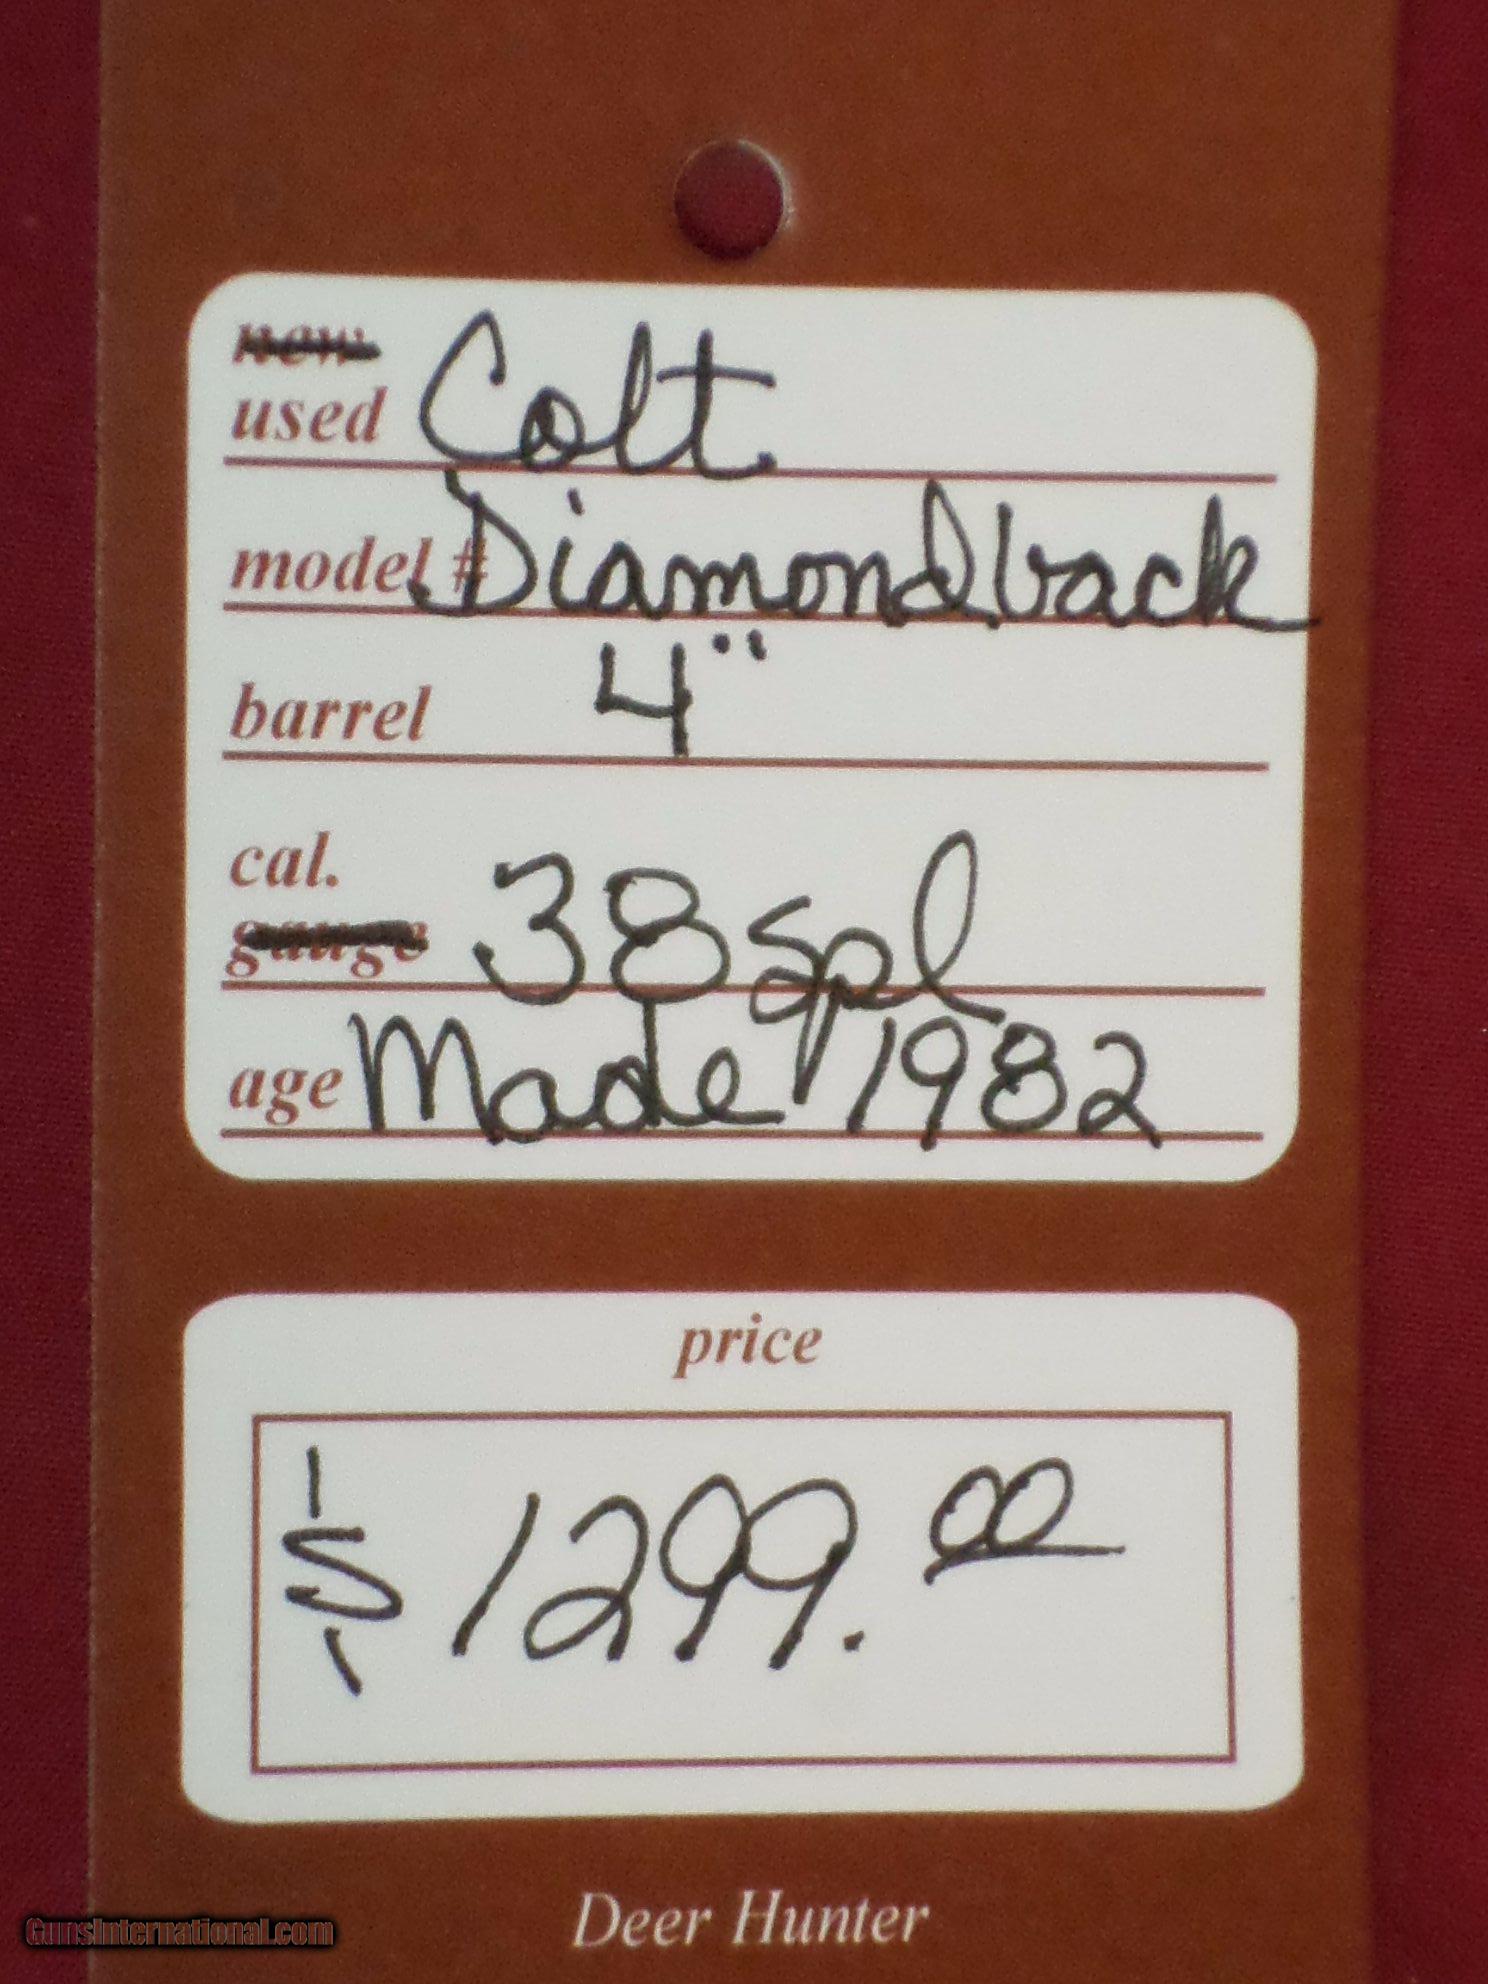 new
used Colt
model # Diamondback
barrel 4"
cal.
gauge 38 spl
age Made 1982
price
$ 1299.00
Deer Hunter
GunsInternational.com